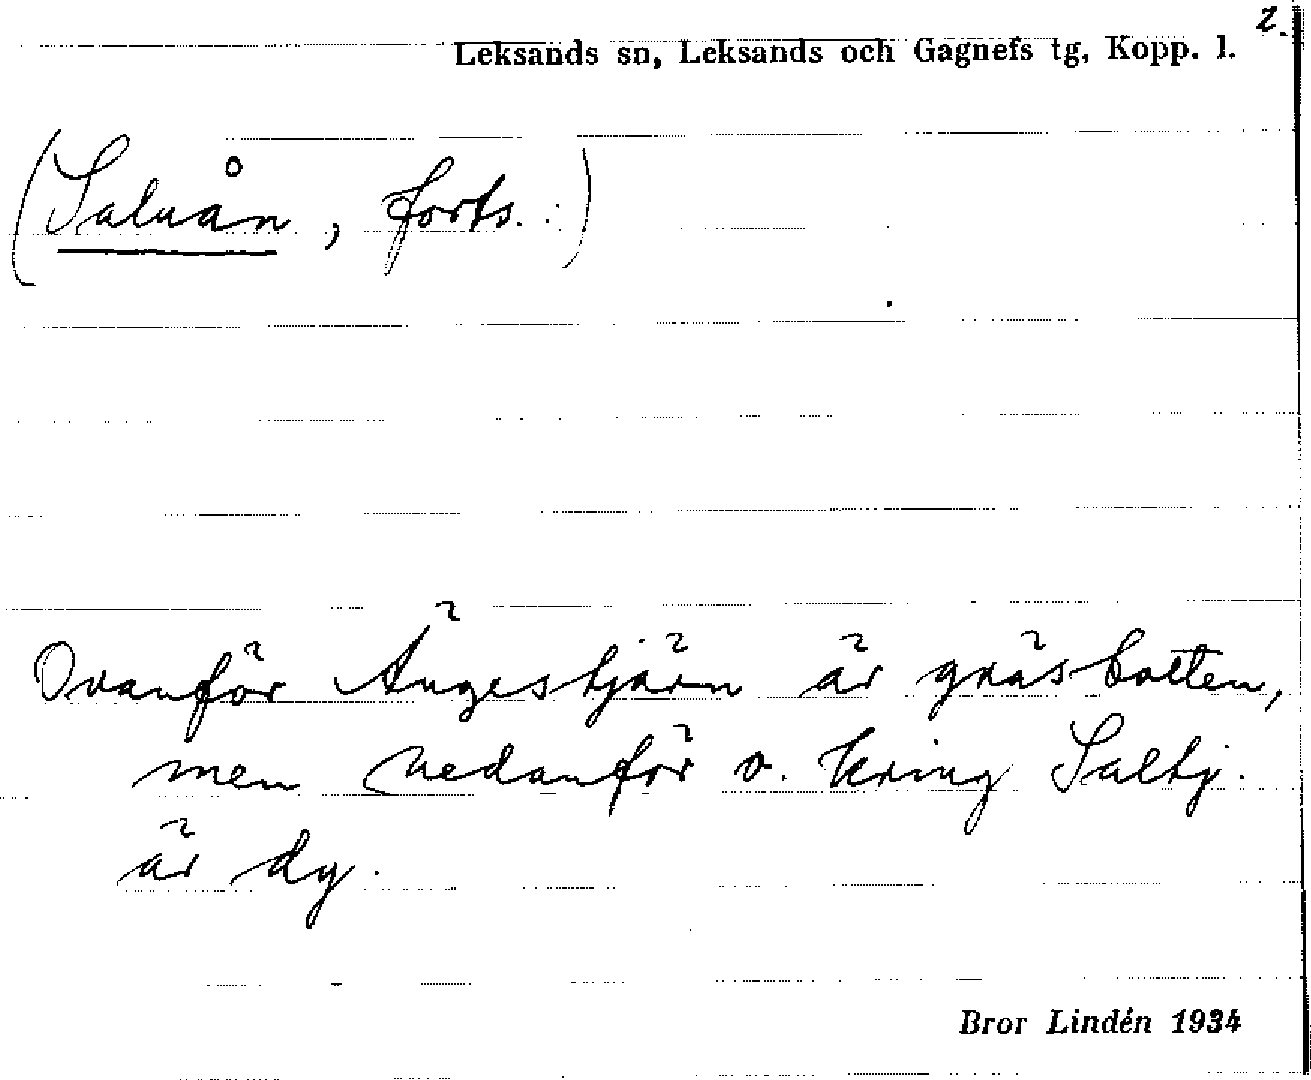 2.
Leksands sn, Leksands och Gagnefs tg, Kopp. l.
(Saluån, forts. :)
Ovanför Ängestjärn är gräsbotten,
men nedanför o. kring Saltj.
är dy.
Bror Lindén 1934